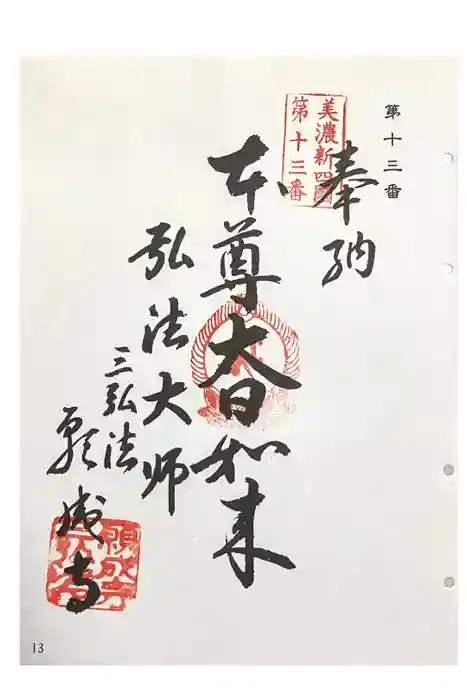 第十三番
美濃新四國
第十三番
奉納
本尊大日如来
弘法大師
三弘法
願成寺
願成寺
13